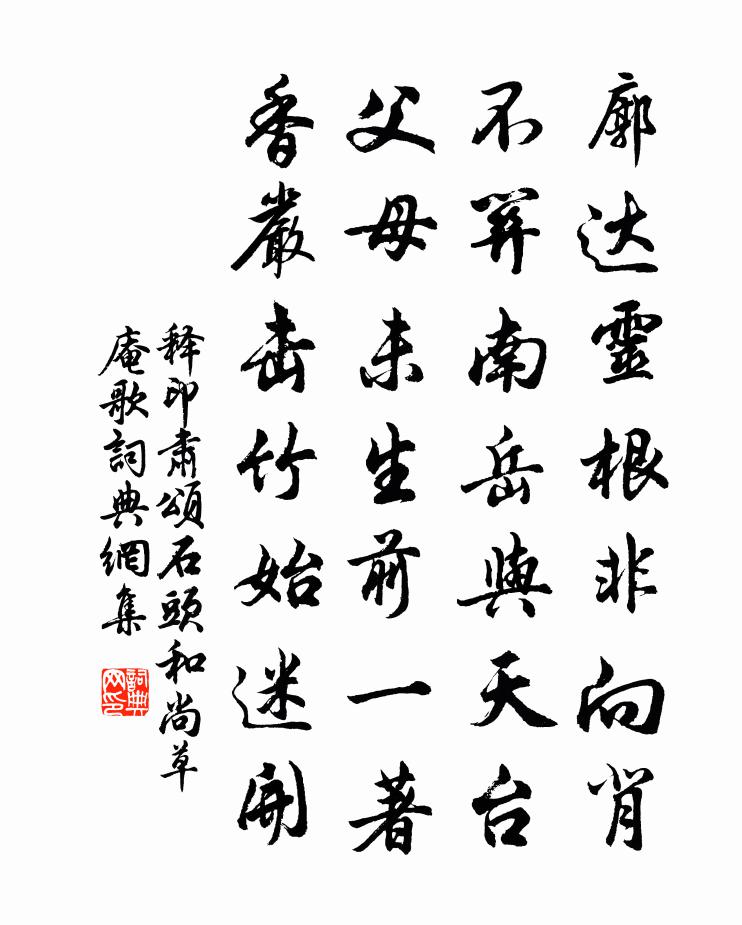 廓达靈根非向背
不筭南岳與天台
父母未生前一著
香嚴击竹始迷開
释印肃頌石頭和尚草
庵歌詞典網集
詞典网印